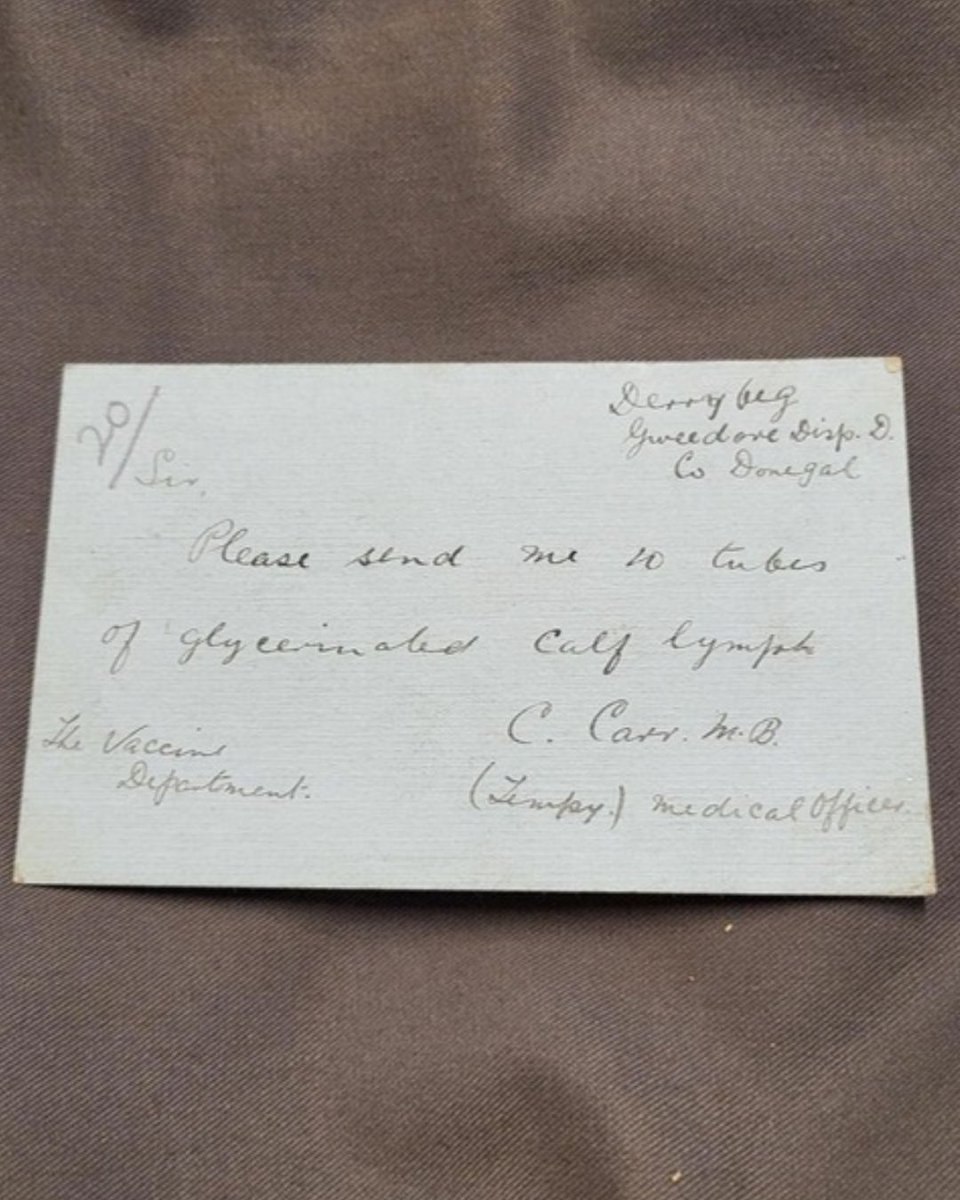 20/
Derrybeg
Gweedore Disp. D.
Co Donegal
Sir,
Please send me 10 tubes
of glycerinated calf lymph
C. Carr. M.B.
(Tempy.) Medical Officer.
The Vaccine
Department.